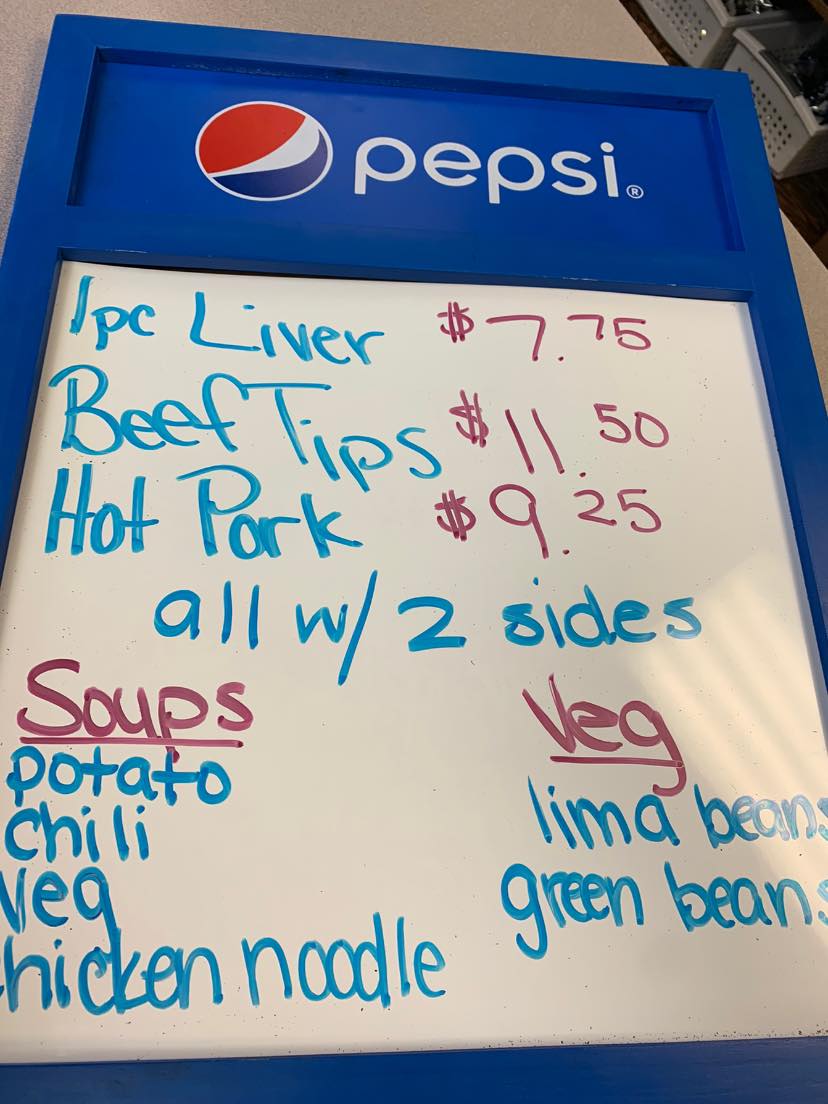 pepsi®
1pc Liver $7.75
Beef Tips $11.50
Hot Pork $9.25
all w/ 2 sides
Soups
potato
chili
veg
chicken noodle
Veg
lima beans
green beans